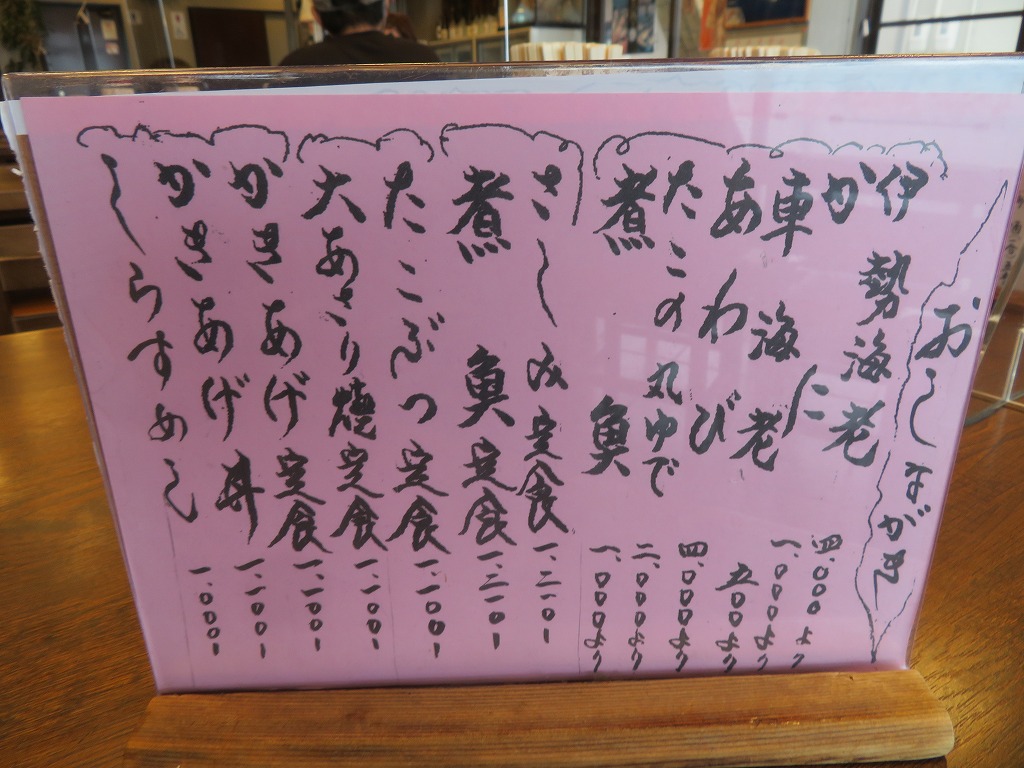 おしながき
伊勢海老 四、〇〇〇より
かに 一、〇〇〇より
車海老 五〇〇より
あわび 四、〇〇〇より
たこの丸ゆで 二、〇〇〇より
煮魚 一、〇〇〇より
さしみ定食 一、二〇〇ー
煮魚定食 一、二〇〇ー
たこぶつ定食 一、一〇〇ー
大あさり焼定食 一、一〇〇ー
かきあげ定食 一、一〇〇ー
かきあげ丼 一、一〇〇ー
しらすめし 一、〇〇〇ー